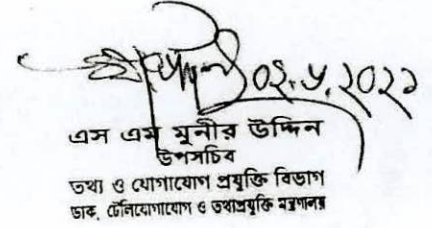 ০২.৮.২০২১
এস এম মুনীর উদ্দিন
উপসচিব
তথ্য ও যোগাযোগ প্রযুক্তি বিভাগ
ডাক, টেলিযোগাযোগ ও তথ্যপ্রযুক্তি মন্ত্রণালয়